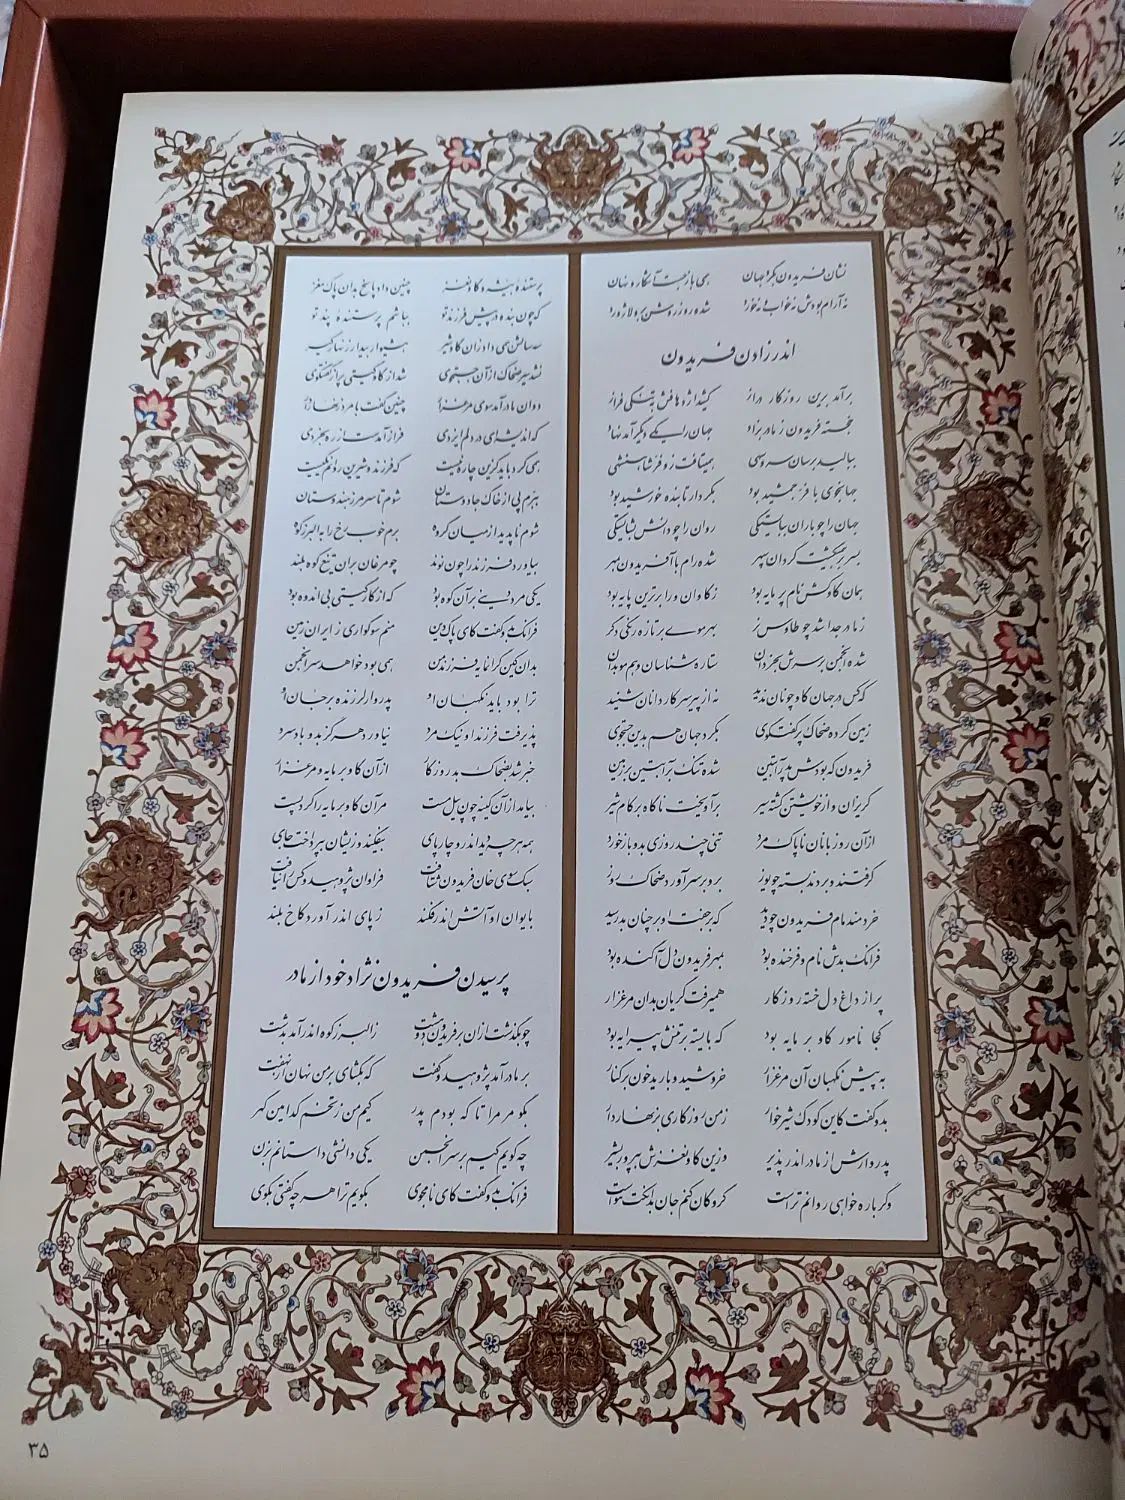 نشان فریدون بگرد جهان همی بازجست آشکار و نهان
نه آرام بودش نه خواب و نه خورد شده روز روشن برو لاژورد
اندر زادن فریدون
برآمد برین روزگار دراز کشید اژدهافش بتنگی فراز
خجسته فریدون ز مادر بزاد جهان را یکی دیگر آمد نهاد
ببالید برسان سرو سهی همیتافت زو فر شاهنشهی
جهانجوی با فر جمشید بود بکردار تابنده خورشید بود
جهان را چو باران ببایستگی روان را چو دانش بشایستگی
بسر بر همیگشت گردان سپهر شده رام با آفریدون بمهر
همان گاو کش نام پرمایه بود ز گاوان ورا برترین پایه بود
ز مادر جدا شد چو طاوس نر بهر موی بر تازه رنگی دگر
شده انجمن بر سرش بخردان ستاره شناسان و هم موبدان
که کس در جهان گاو چونان ندید نه از پیر سر کاردانان شنید
زمین کرده ضحاک پر گفتگوی بگرد جهان هم بدین جستجوی
فریدون که بودش پدر آبتین شده تنگ بر آبتین بر زمین
گریزان و از خویشتن گشته سیر برآویخت ناگاه بر کام شیر
از آن روزبانان ناپاک مرد تنی چند روزی بدو باز خورد
گرفتند و بردند بسته چو یوز برو بر سر آورد ضحاک روز
خردمند مام فریدون چو دید که بر جفت او بر چنان بد رسید
فرانک بدش نام و فرخنده بود بمهر فریدون دل آکنده بود
پر از داغ دل خسته روزگار همیرفت گریان بدان مرغزار
کجا نامور گاو برمایه بود که بایسته بر تنش پیرایه بود
به پیش نگهبان آن مرغزار خروشید و بارید خون بر کنار
بدو گفت کاین کودک شیرخوار ز من روزگاری بزنهار دار
پدروارش از مادر اندر پذیر وزین گاو نغزش بپرور بشیر
وگر باره خواهی روانم تراست گروگان کنم جان بدان کت هواست
پرستنده بیشه و گاو نغز چنین داد پاسخ بدان پاک مغز
که چون بنده در پیش فرزند تو بباشم پرستنده پند تو
سه سالش همی داد زان گاو شیر هشیوار بیدار زنهارگیر
نشد سیر ضحاک از آن جستجوی شد از گاو گیتی پر از گفتگوی
دوان مادر آمد سوی مرغزار چنین گفت با مرد زنهاردار
که اندیشه‌ای در دلم ایزدی فراز آمدست از ره بخردی
همی کرد باید کزین چاره نیست که فرزند و شیرین روانم یکیست
ببرم پی از خاک جادوستان شوم تا سر مرز هندوستان
شوم ناپدید از میان گروه برم خوب رخ را به البرز کوه
بیاورد فرزند را چون نوند چو مرغان بران تیغ کوه بلند
یکی مرد دینی بر آن کوه بود که از کار گیتی بی اندوه بود
فرانک بدو گفت کای پاک دین منم سوگواری ز ایران زمین
بدان کین گرانمایه فرزند من همی بود خواهد سر انجمن
ترا بود باید نگهبان او پدروار لرزنده بر جان او
پذیرفت فرزند او نیک مرد نیاورد هرگز بدو باد سرد
خبر شد بضحاک بد روزگار از آن گاو برمایه و مرغزار
بیامد از آن کینه چون پیل مست مر آن گاو برمایه را کرد پست
همه هر چه دید اندرو چارپای بیفکند و زیشان بپرداخت جای
سبک سوی خان فریدون شتافت فراوان پژوهید و کس را نیافت
بایوان او آتش اندر فکند ز پای اندر آورد کاخ بلند
پرسیدن فریدون نژاد خود از مادر
چو بگذشت از آن بر فریدون دو هشت ز البرز کوه اندر آمد بدشت
بر مادر آمد پژوهید و گفت که بگشای بر من نهان از نهفت
بگو مر مرا تا که بودم پدر کیم من ز تخم کدامین گهر
چه گویم کیم بر سر انجمن یکی دانشی داستانم بزن
فرانک بدو گفت کای نامجوی بگویم ترا هر چه گفتی بگوی
۳۵